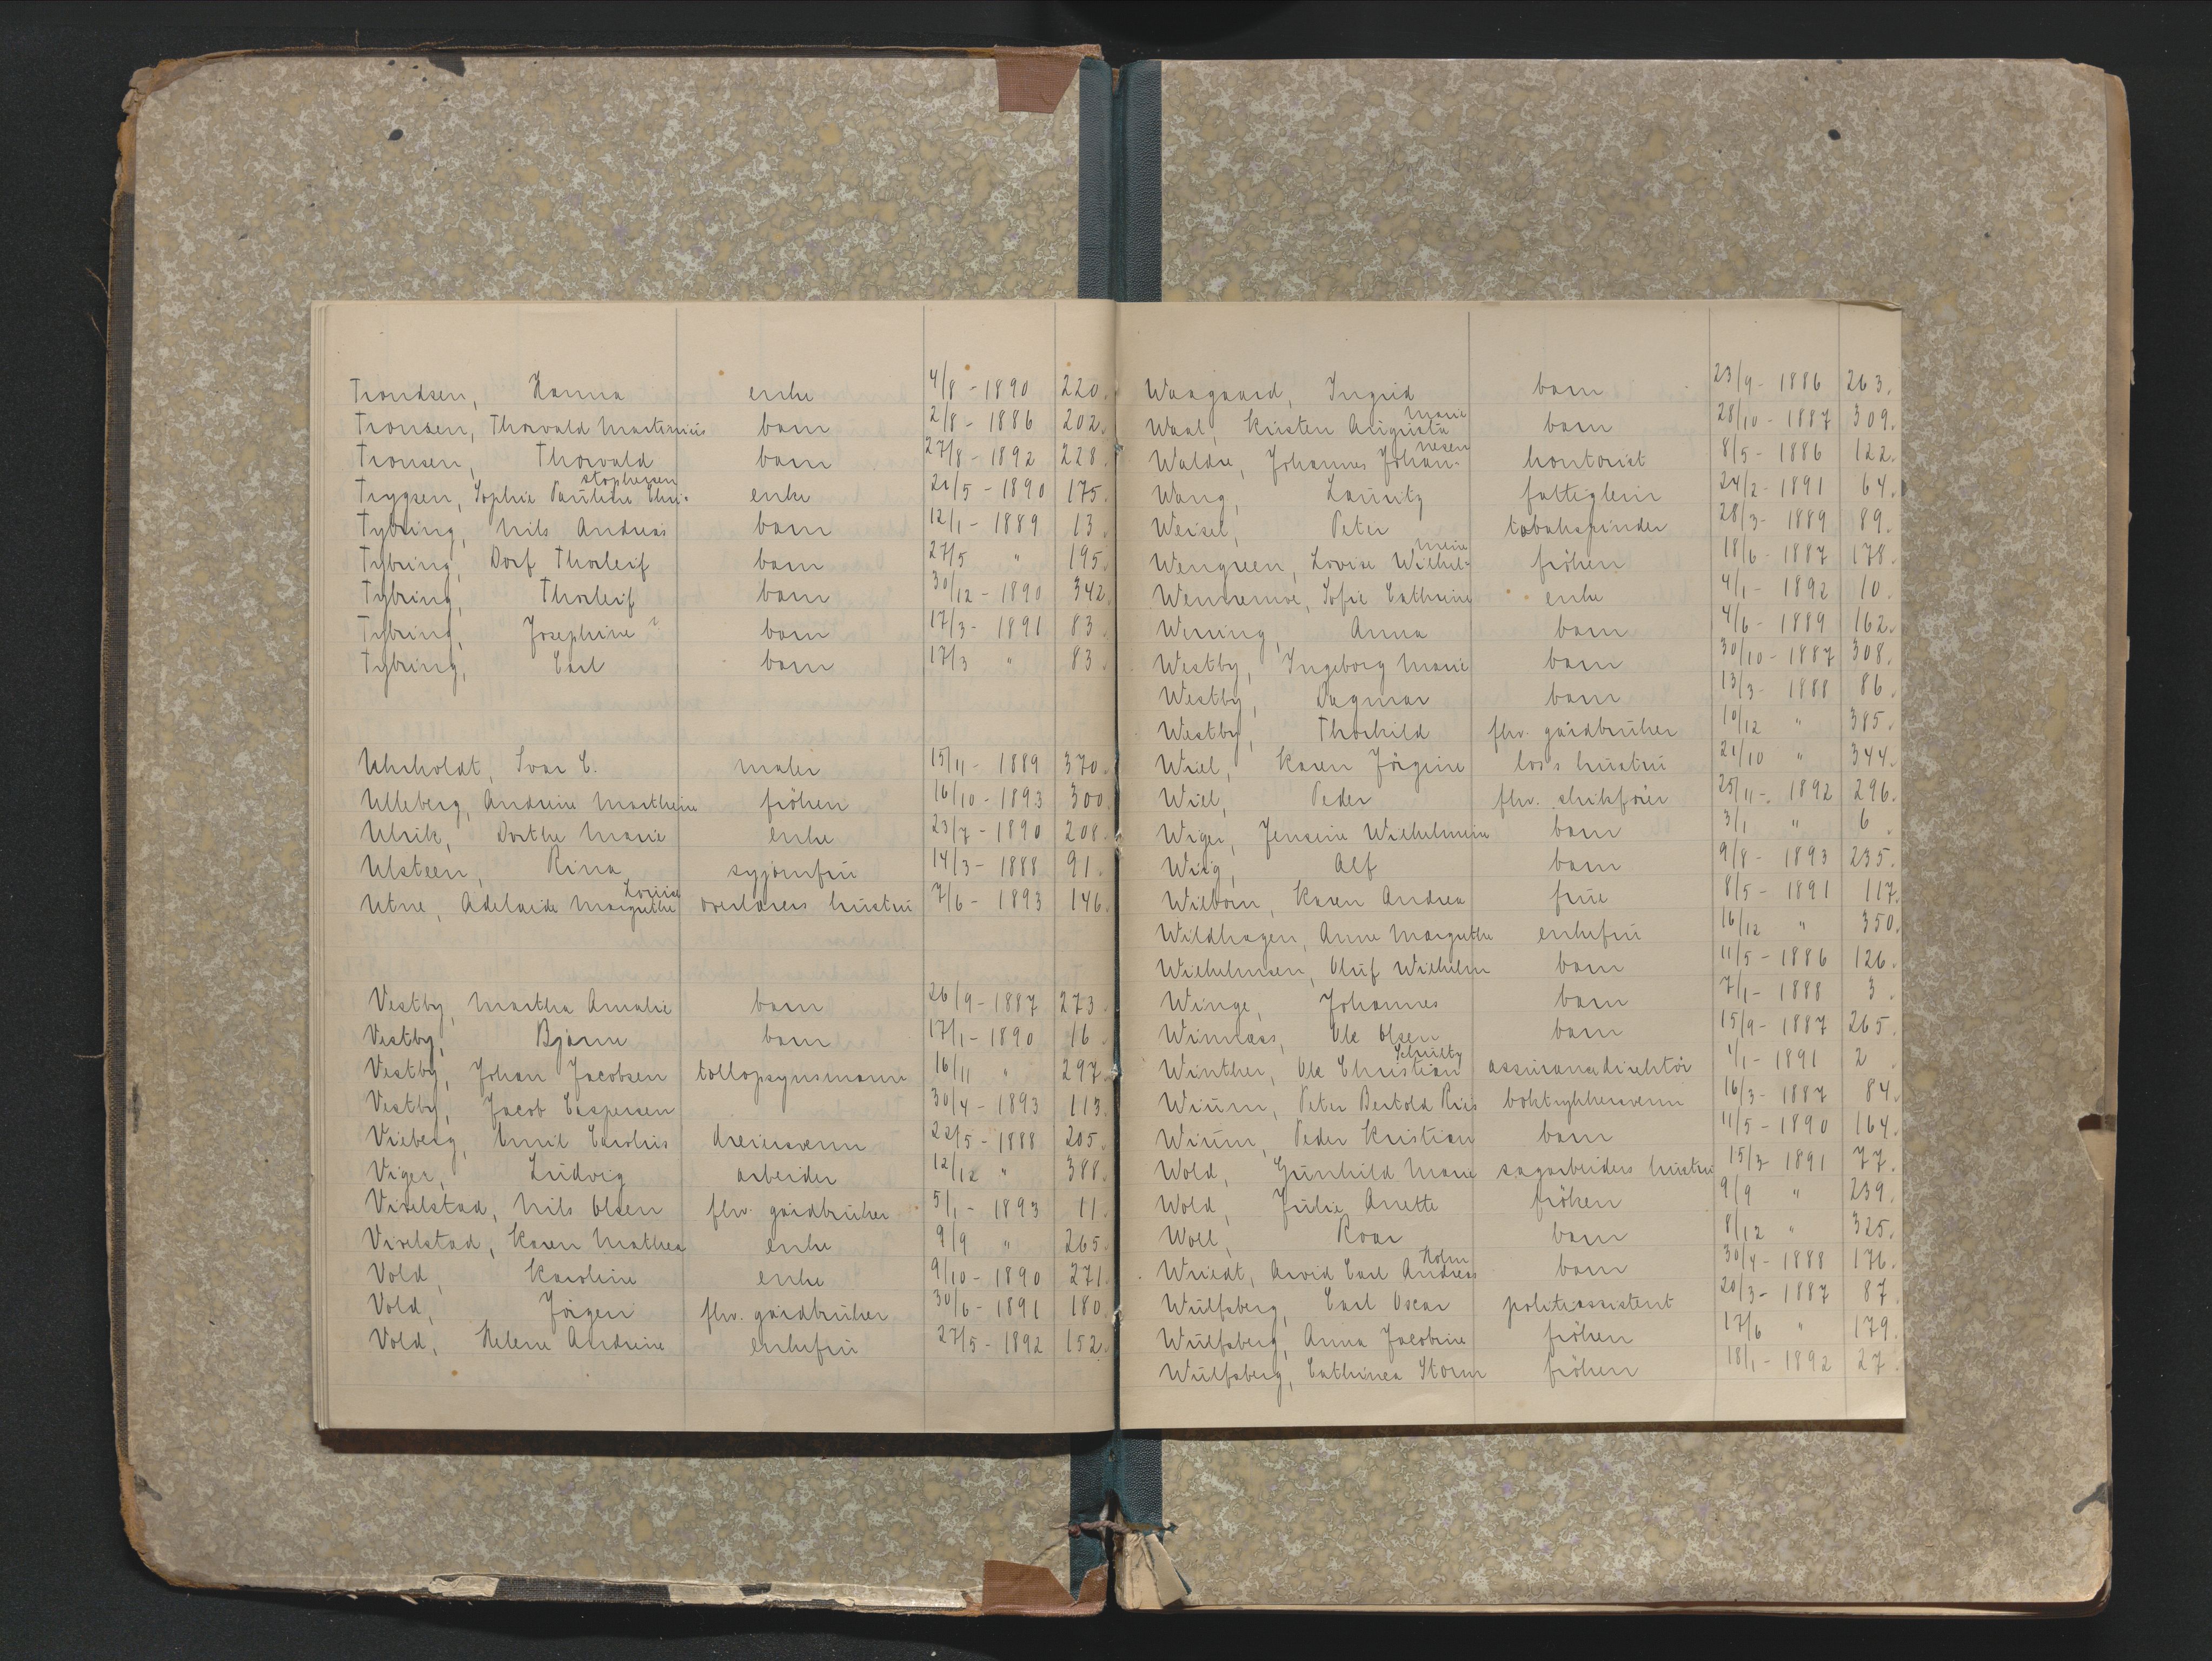 Trondsen, Hanna enke 4/8 - 1890 220.
Tronsen, Thorvald Martinius barn 2/8 - 1886 202.
Tronsen, Thorvald barn 27/8 - 1892 228.
Trygsen, Sophie Pauline Chri-stophersen enke 21/5 - 1890 175.
Tybring, Nils Andreas barn 12/1 - 1889 13.
Tybring, Dorf Thorleif barn 27/5 " 195.
Tybring, Thorleif barn 30/12 - 1890 342.
Tybring, Josephine barn 17/3 - 1891 83.
Tybring, Carl barn 17/3 " 83.
Uhrholdt, Ivar C. maler 15/11 - 1889 370.
Ulleberg, Andrine Marthine fröken 16/10 - 1893 300.
Ulrik, Dorthe Marie enke 23/7 - 1890 208.
Ulsteen, Rina syjomfru 14/3 - 1888 91.
Utne, Adelaide Margrethe Lovise overlærers hustru 7/6 - 1893 146.
Vestby, Martha Amalie barn 26/9 - 1887 273.
Vestby, Bjarne barn 17/1 - 1890 16
Vestby, Johan Jacobsen tollopsynsmann 16/11 " 297.
Vestby, Jacob Caspersen 30/4 - 1893 113.
Vieberg, Emil Carolius dreiersvenn 22/5 - 1888 205.
Viger, Ludvig arbeider 12/12 " 388.
Virelstad, Nils Olsen fhv. gårdbruker 5/1 - 1893 11.
Virelstad, Karen Mathea enke 9/9 " 265.
Vold, Karoline enke 9/10 - 1890 271.
Vold, Jörgen fhv. gårdbruker 30/6 - 1891 180.
Vold, Helene Andrine enkefru 27/5 - 1892 152.
Waagaard, Ingrid barn 23/9 - 1886 263.
Waal, Kirsten Augusta Marie barn 28/10 - 1887 309.
Waldre, Johannes Johan-nesen kontorist 8/5 - 1886 122.
Wang, Lauritz fattiglem 24/2 - 1891 64.
Weisel, Peter tobakspinder 28/3 - 1889 89.
Wengreen, Lovise Wilhel-mine fröken 18/6 - 1887 178.
Wennemoe, Sofie Cathrine enke 4/1 - 1892 10.
Werning, Anna barn 4/6 - 1889 162.
Westby, Ingeborg Marie barn 30/10 - 1887 308.
Westby, Dagmar barn 13/3 - 1888 86.
Westby, Thorkild fhv. gårdbruker 10/12 " 385.
Wiel, Karen Jörgine los's hustru 21/10 " 344.
Wiel, Peder fhv. skibsförer 25/11 - 1892 296.
Wiger, Jensine Wilhelmine barn 3/1 " 6.
Wiig, Alf barn 9/8 - 1893 235.
Wilborn, Karen Andrea frue 8/5 - 1891 117.
Wildhagen, Anne Margrethe enkefru 16/12 " 350.
Wilhelmsen, Oluf Wilhelm barn 11/5 - 1886 126.
Winge, Johannes barn 7/1 - 1888 3.
Winnæss, Ole Olsen barn 15/9 - 1887 265.
Winther, Ole Christian Schultz assuransedirektör 1/1 - 1891 2
Wium, Peter Bertold Riis boktrykkersvenn 16/3 - 1887 84.
Wium, Peder Kristian barn 11/5 - 1890 164.
Wold, Gunhild Marie sagarbeiders hustru 15/3 1891 77.
Wold, Julie Anette fröken 9/9 " 239.
Woll, Roar barn 8/12 " 325.
Wriedt, Arvid Carl Andreas Holm barn 30/4 - 1888 176.
Wulfsberg, Carl Oscar politiassistent 20/3 - 1887 87.
Wulfsberg, Anna Jacobine fröken 17/6 " 179.
Wulfsberg, Cathinca Storm fröken 18/1 - 1892 27.